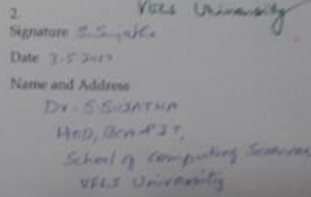 2. VELS University
Signature S. Sujatha
Date 3-5-2017
Name and Address
Dr. S. SUJATHA
HOD, BCA & IT,
School of Computing Sciences,
VELS University